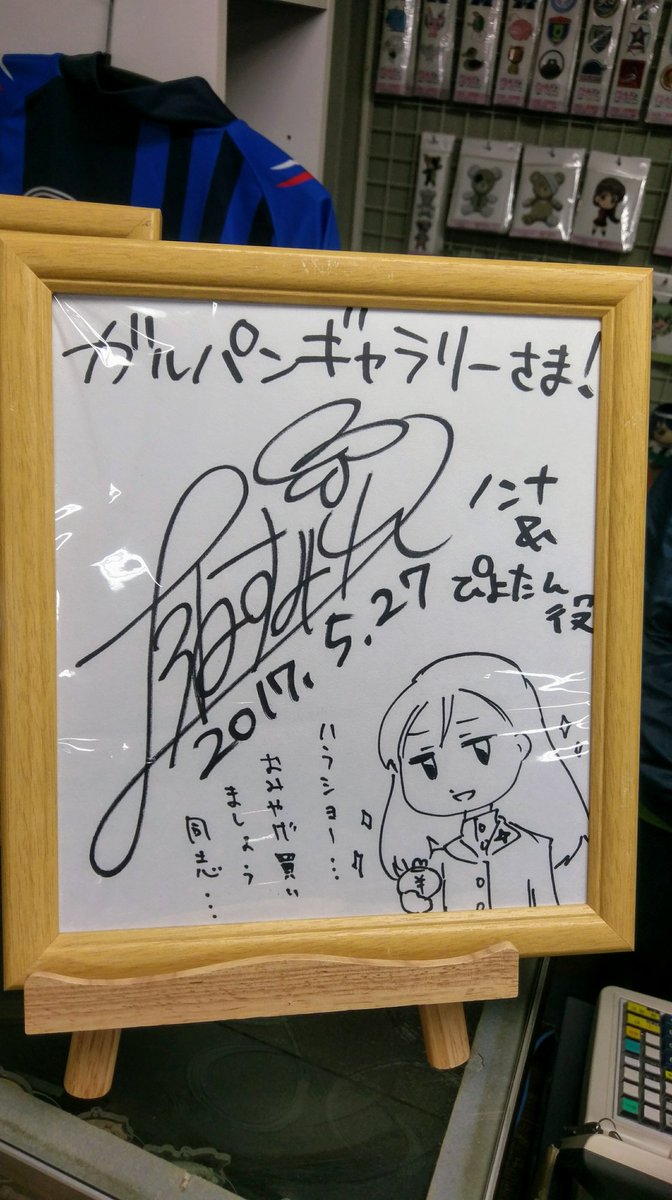 ガルパンギャラリーさま!
ノンナ
&
ぴよたん
役
2017.5.27
ハラショー…
おみやげ買い
ましょう
同志…